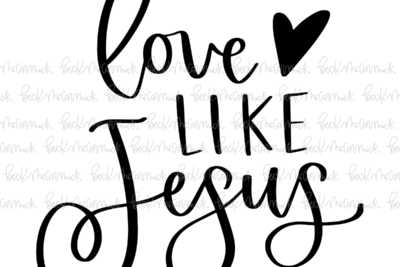 love
LIKE
Jesus